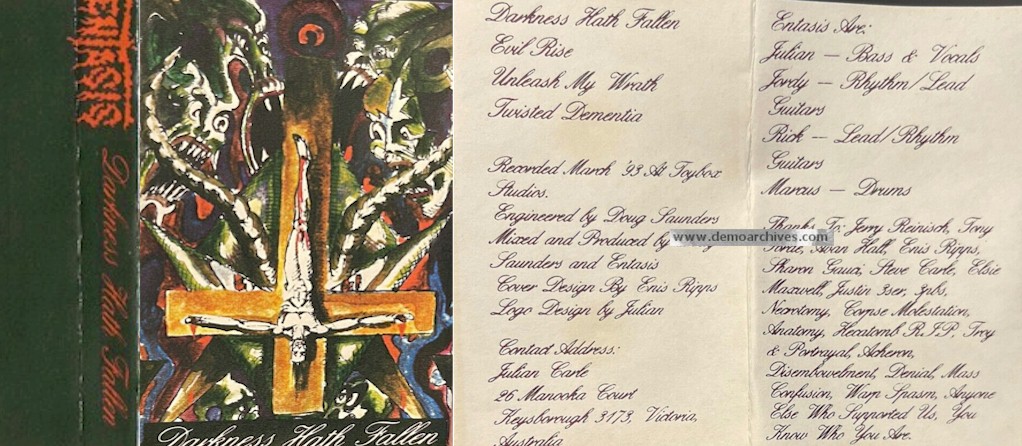 ENTASIS
Darkness Hath Fallen
Darkness Hath Fallen
Darkness Hath Fallen
Evil Rise
Unleash My Wrath
Twisted Dementia
Recorded March '93 At Toybox
Studios.
Engineered by Doug Saunders
Mixed and Produced by
Saunders and Entasis
Cover Design By Enis Ripps
Logo Design by Julian
Contact Address:
Julian Carle
26 Manooka Court
Keysborough 3173, Victoria,
Australia
www.demoarchives.com
Entasis Are:
Julian — Bass & Vocals
Jordy — Rhythm/Lead
Guitars
Rick — Lead/Rhythm
Guitars
Marcus — Drums
Thanks To: Jerry Reinisch, Tony
Hall, Enis Ripps,
Sharon Gauci, Steve Carle, Elsie
Maxwell, Justin 3ser, 3pbs,
Necrotomy, Corpse Molestation,
Anatomy, Hecatomb R.I.P, Troy
& Portrayal, Acheron,
Disembowelment, Denial, Mass
Confusion, Warp Spasm, Anyone
Else Who Supported Us, You
Know Who You Are.